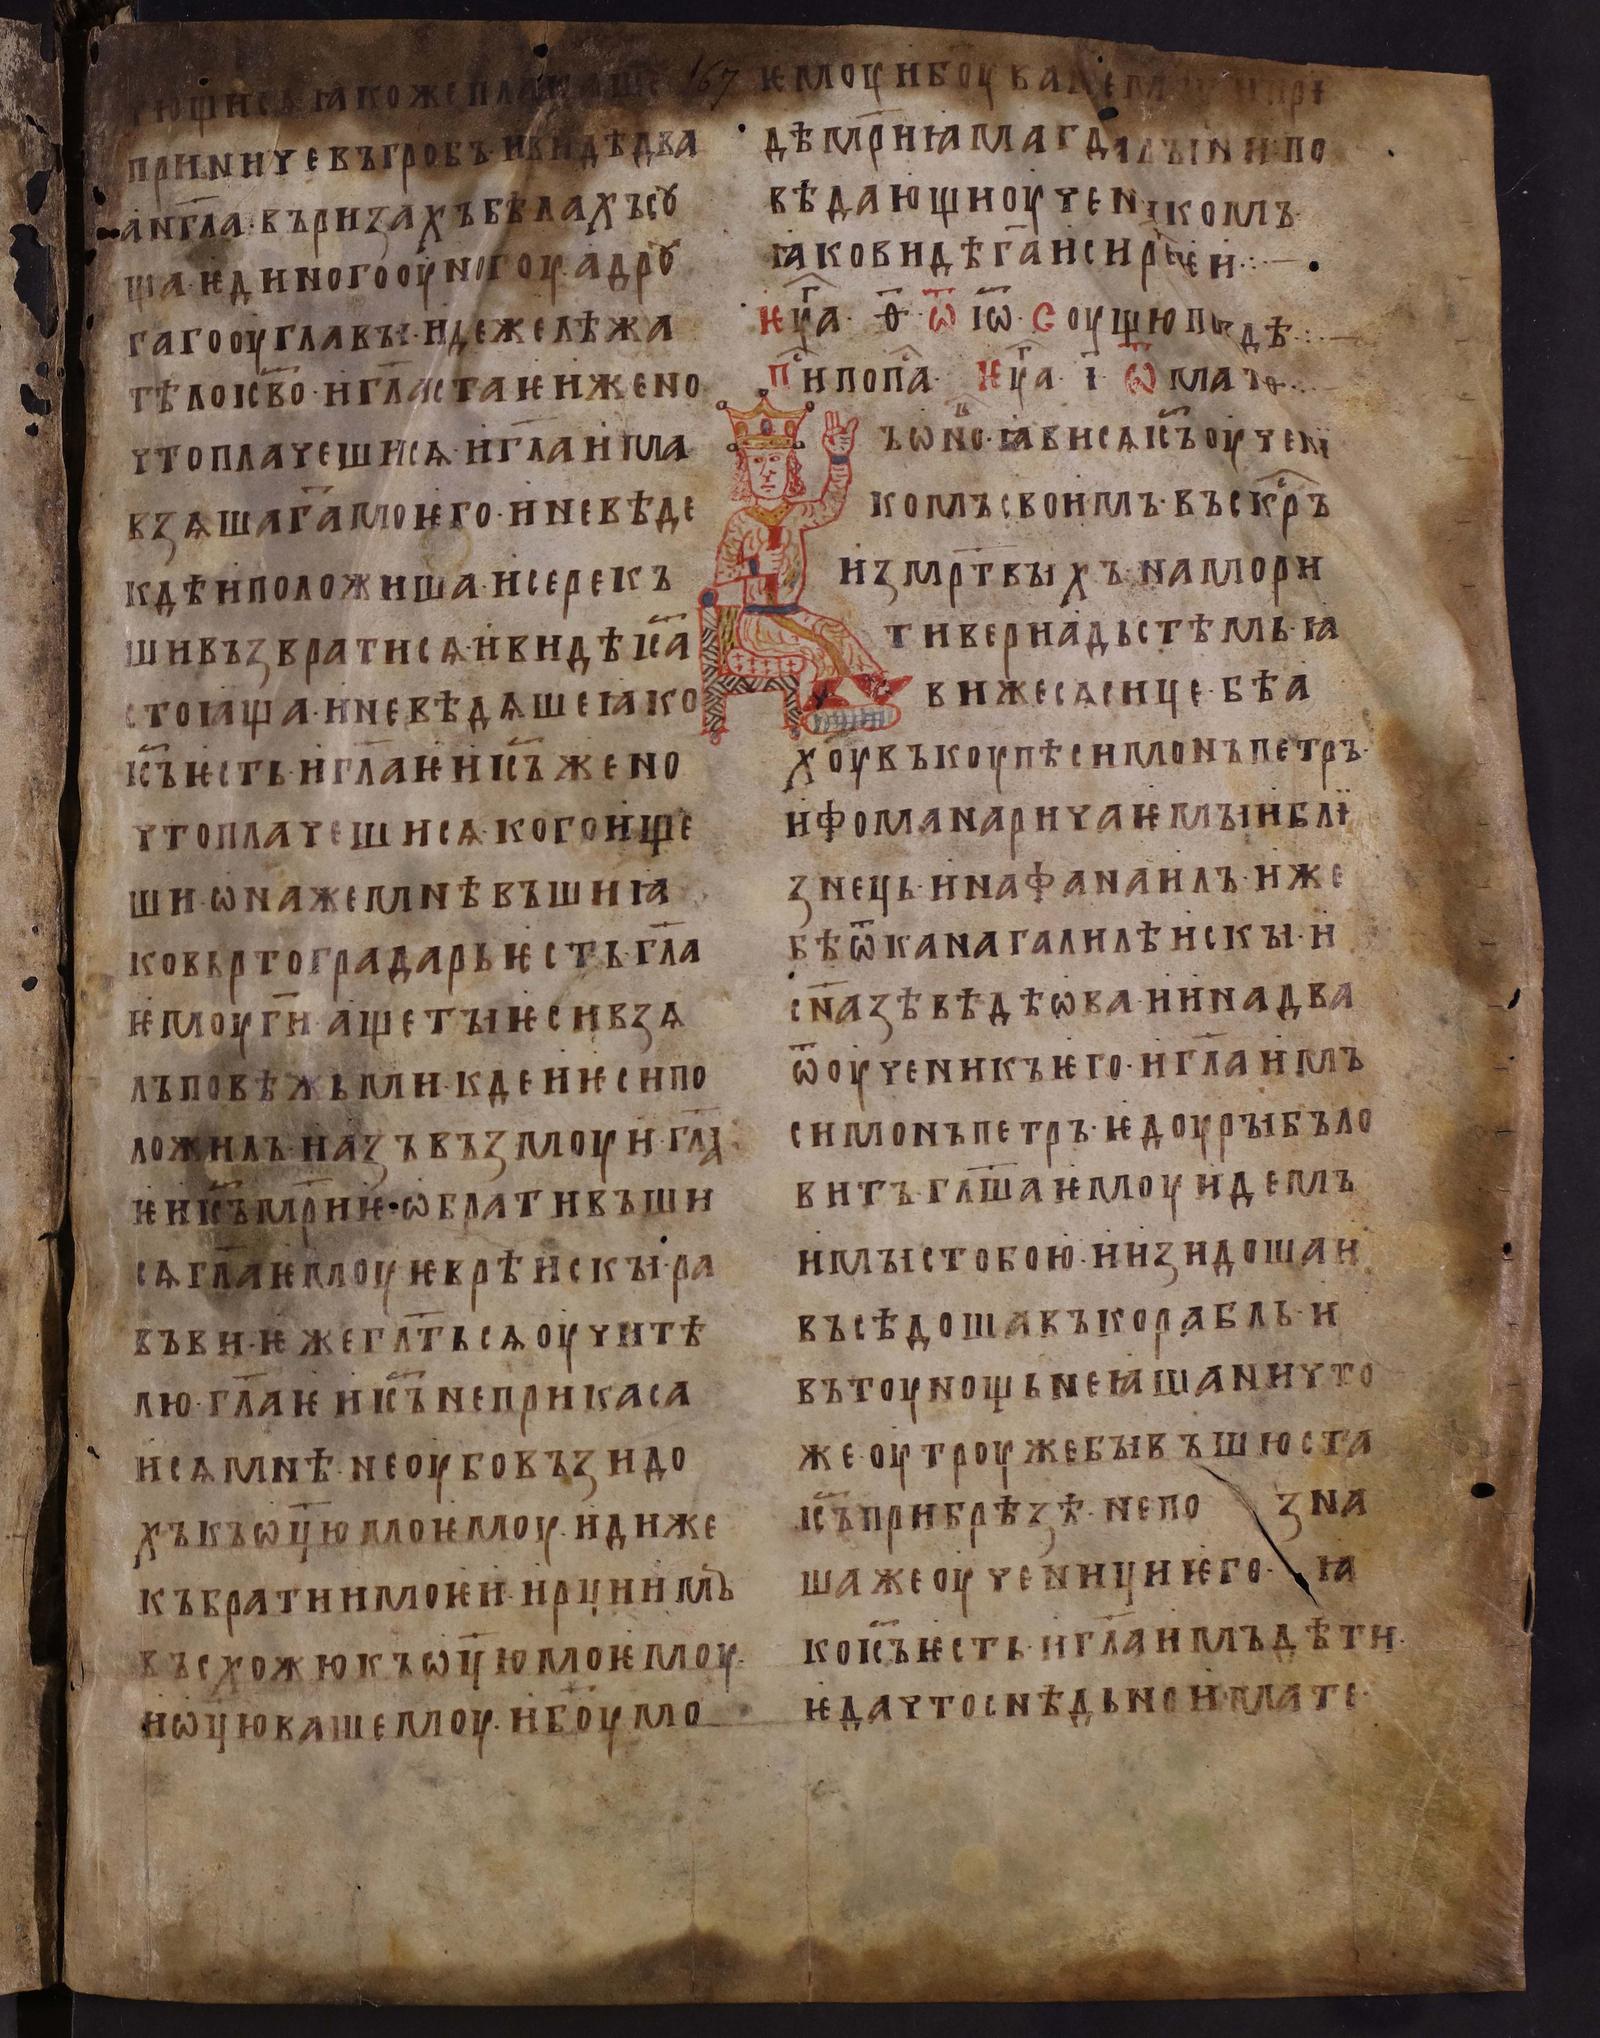 167
чющисѧ ꙗкоже плакаше
приничевъгробъ·ивидѣдва
англ҃а·въризахъбѣлахъсѣ
ща·ѥдиногооуногоу·адрꙋ
гагооуглавы·идежележа
тѣлоіс҃во·игл҃астаѥижено
чтоплачешисѧ·игл҃аима
взѧшаг҃амоѥго·иневѣде
кдѣиположиша·исерекъ
шивъзвратисѧ·ивидѣіс҃а
стоꙗща·иневѣдѧшеꙗко
іс҃ъѥсть·игл҃аѥиіс҃ъжено
чтоплачешисѧ·когоище
ши·ѡнажемнѣвъшиꙗ
ковьртоградарьѥсть·гл҃а
ѥмоуг҃и·ащетыѥсивзѧ
лъповѣжьми·кдеиѥсипо
ложилъ·иазъвъзмоуи·гл҃а
ѥиіс҃ъмр҃иѥ·ѡбративъши
сѧгл҃аѥмоуѥврѣискы·ра
въви·ѥжегл҃тьсѧоучитѣ
лю·гл҃аѥиіс҃ънеприкаса
исѧмнѣ·неоубовъзидо
хъкъѡц҃юмоѥмоу·идиже
къбратиимоѥи·ирциимъ
въсхожюкъѡц҃юмоѥмоу·
иѡц҃ювашемоу·иб҃оумо
ѥмоуиб҃оувашемоу·ипри
дѣмр҃иꙗмагдалыниипо
вѣдающиоученикомъ·
ꙗковидѣг҃аисирѣеи·:·—
ѥуⷢ҇а·ѳ҃·ѿіѡ҃·Соущюпоздѣ·:·—
пⷭ҇ипопⷭ҇а·ѥуⷢ҇а·і҃·ѿмат·ѳ·:·
ъѡно·ꙗвисѧіс҃ъоучені
комъсвоимъ·въскр҃ъ
измр҃твыхъ·намори
тивериадьстѣмь·ꙗ
вижесѧсице·бѣа
хоувъкоупѣсимонъпетръ·
ифоманаричаѥмыиблі
знець·инафанаилъ·иже
бѣѿканагалилѣискы·и
сн҃азѣведѣѡва·иинадва
ѿоученикъѥго·игл҃аимъ
симонъпетръ·ѥдоурыбъло
витъ·гл҃шаѥмоуидемъ
имыстобою·иизидошаи
въсѣдошавъкорабль·и
вътоунощьнеꙗшаничто
жеоутроужебывъшюста
іс҃ъприбрѣзѣ·непозна
шажеоученициѥго·ꙗ
коіс҃ъѥсть·игл҃аимъдѣти
ѥдачтоснѣдьноимате·